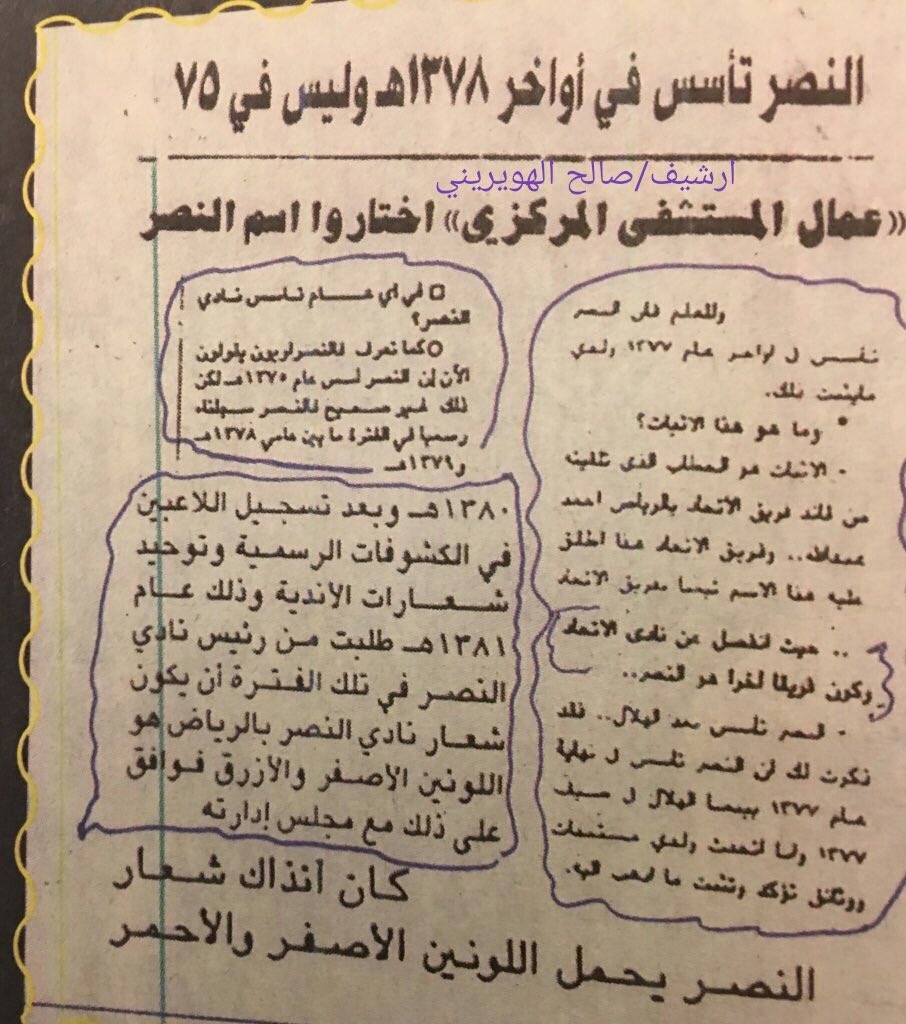 النصر تأسس في أواخر ١٣٧٨هـ وليس في ٧٥
ارشيف/صالح الهويريني
«عمال المستشفى المركزي» اختاروا اسم النصر
وللعلم فان النصر
تأسس في اواخر عام ١٣٧٧ ولدي
مايثبت ذلك.
* وما هو هذا الاثبات؟
- الاثبات هو الخطاب الذي تلقيته
من قائد فريق الاتحاد بالرياض احمد
عبدالله.. وفريق الاتحاد هذا اطلق
عليه هذا الاسم تيمنا بفريق الاتحاد
.. حيث انفصل عن نادي الاتحاد
وكون فريقا اخرا هو النصر..
- النصر تأسس بعد الهلال.. فقد
ذكرت لك ان النصر تأسس في نهاية
عام ١٣٧٧ بينما الهلال في صيف
١٣٧٧ وانا اتحدث ولدي مستندات
ووثائق تؤكد وتثبت ما اذهب اليه.
□ في أي عــام تأسس نادي
النصر؟
○ كما تعرف فالنصراويون يقولون
الآن إن النصر أسس عام ١٣٧٥هـ لكن
ذلك غير صحيح فالنصر سجلناه
رسميا في الفترة ما بين عامي ١٣٧٨هـ
و١٣٧٩هـ
١٣٨٠هـ وبعد تسجيل اللاعبين
في الكشوفات الرسمية وتوحيد
شعارات الأندية وذلك عام
١٣٨١هـ طلبت من رئيس نادي
النصر في تلك الفترة أن يكون
شعار نادي النصر بالرياض هو
اللونين الأصفر والأزرق فوافق
على ذلك مع مجلس إدارته
كان آنذاك شعار
النصر يحمل اللونين الأصفر والأحمر